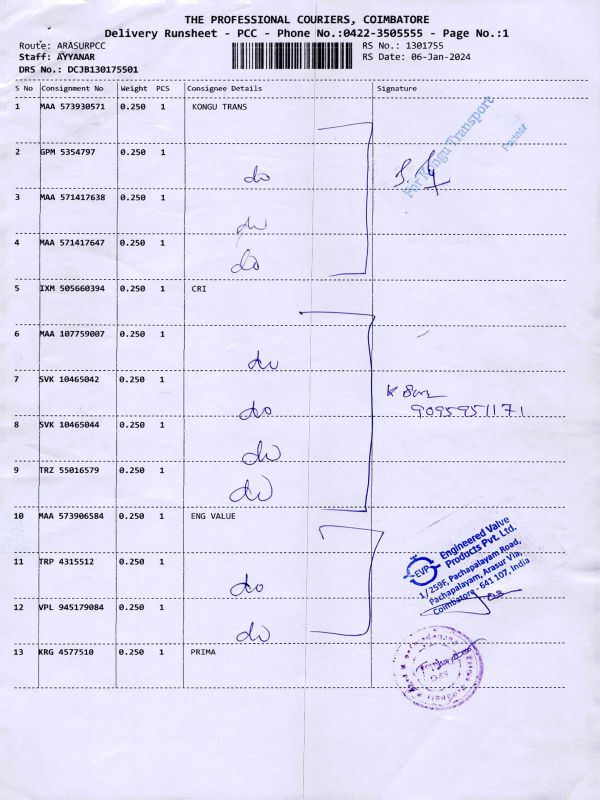 THE PROFESSIONAL COURIERS, COIMBATORE
Delivery Runsheet - PCC - Phone No.:0422-3505555 - Page No.:1
Route: ARASURPCC RS No.: 1301755
Staff: AYYANAR RS Date: 06-Jan-2024
DRS No.: DCJB130175501
S No Consignment No Weight PCS Consignee Details Signature
1 MAA 573930571 0.250 1 KONGU TRANS
For Kongu Transport
Partner
2 GPM 5354797 0.250 1
do
3 MAA 571417638 0.250 1
do
4 MAA 571417647 0.250 1
do
5 IXM 505660394 0.250 1 CRI
6 MAA 107759007 0.250 1
do
7 SVK 10465042 0.250 1
do 9095951171
8 SVK 10465044 0.250 1
do
9 TRZ 55016579 0.250 1
do
10 MAA 573906584 0.250 1 ENG VALUE
EVP Engineered Valve
Products Pvt. Ltd.
1/259F, Pachapalayam Road,
Pachapalayam, Arasur Via,
Coimbatore - 641 107, India
11 TRP 4315512 0.250 1
do
12 VPL 945179084 0.250 1
do
13 KRG 4577510 0.250 1 PRIMA